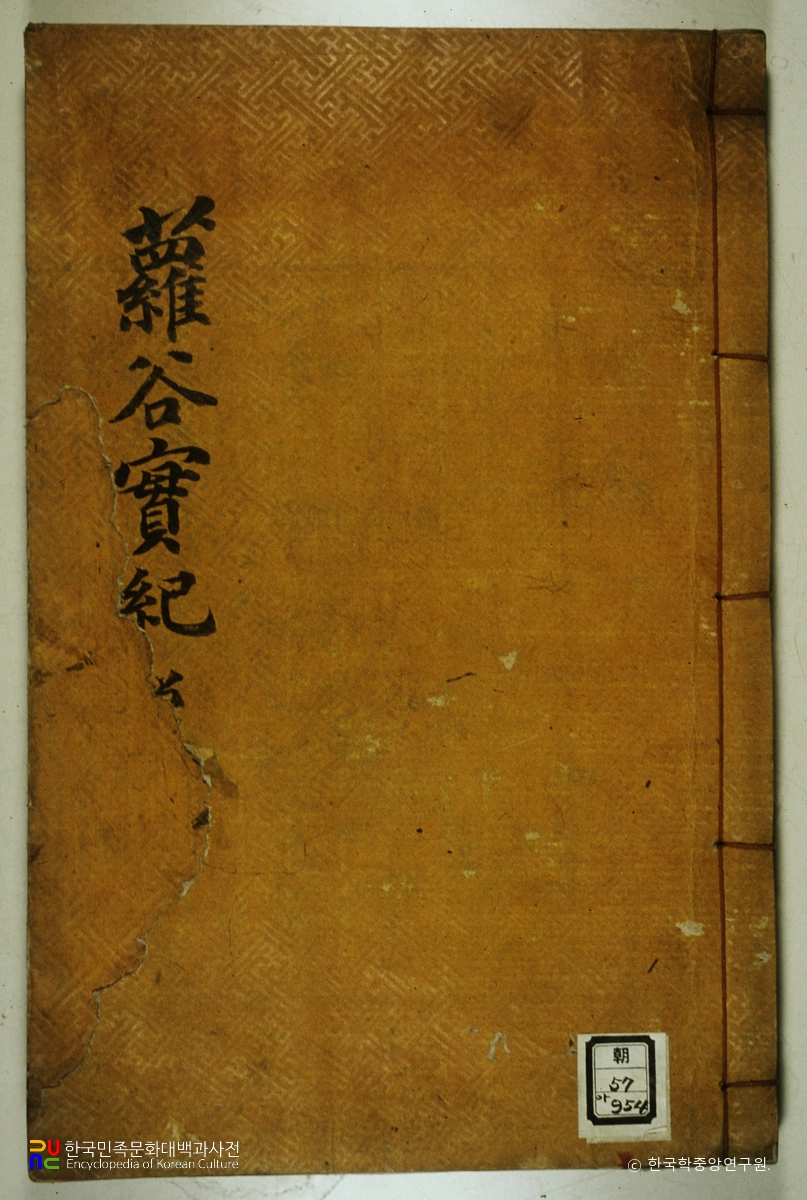 蘿谷實紀
朝
57
아
954
한국민족문화대백과사전
Encyclopedia of Korean Culture
ⓒ 한국학중앙연구원.